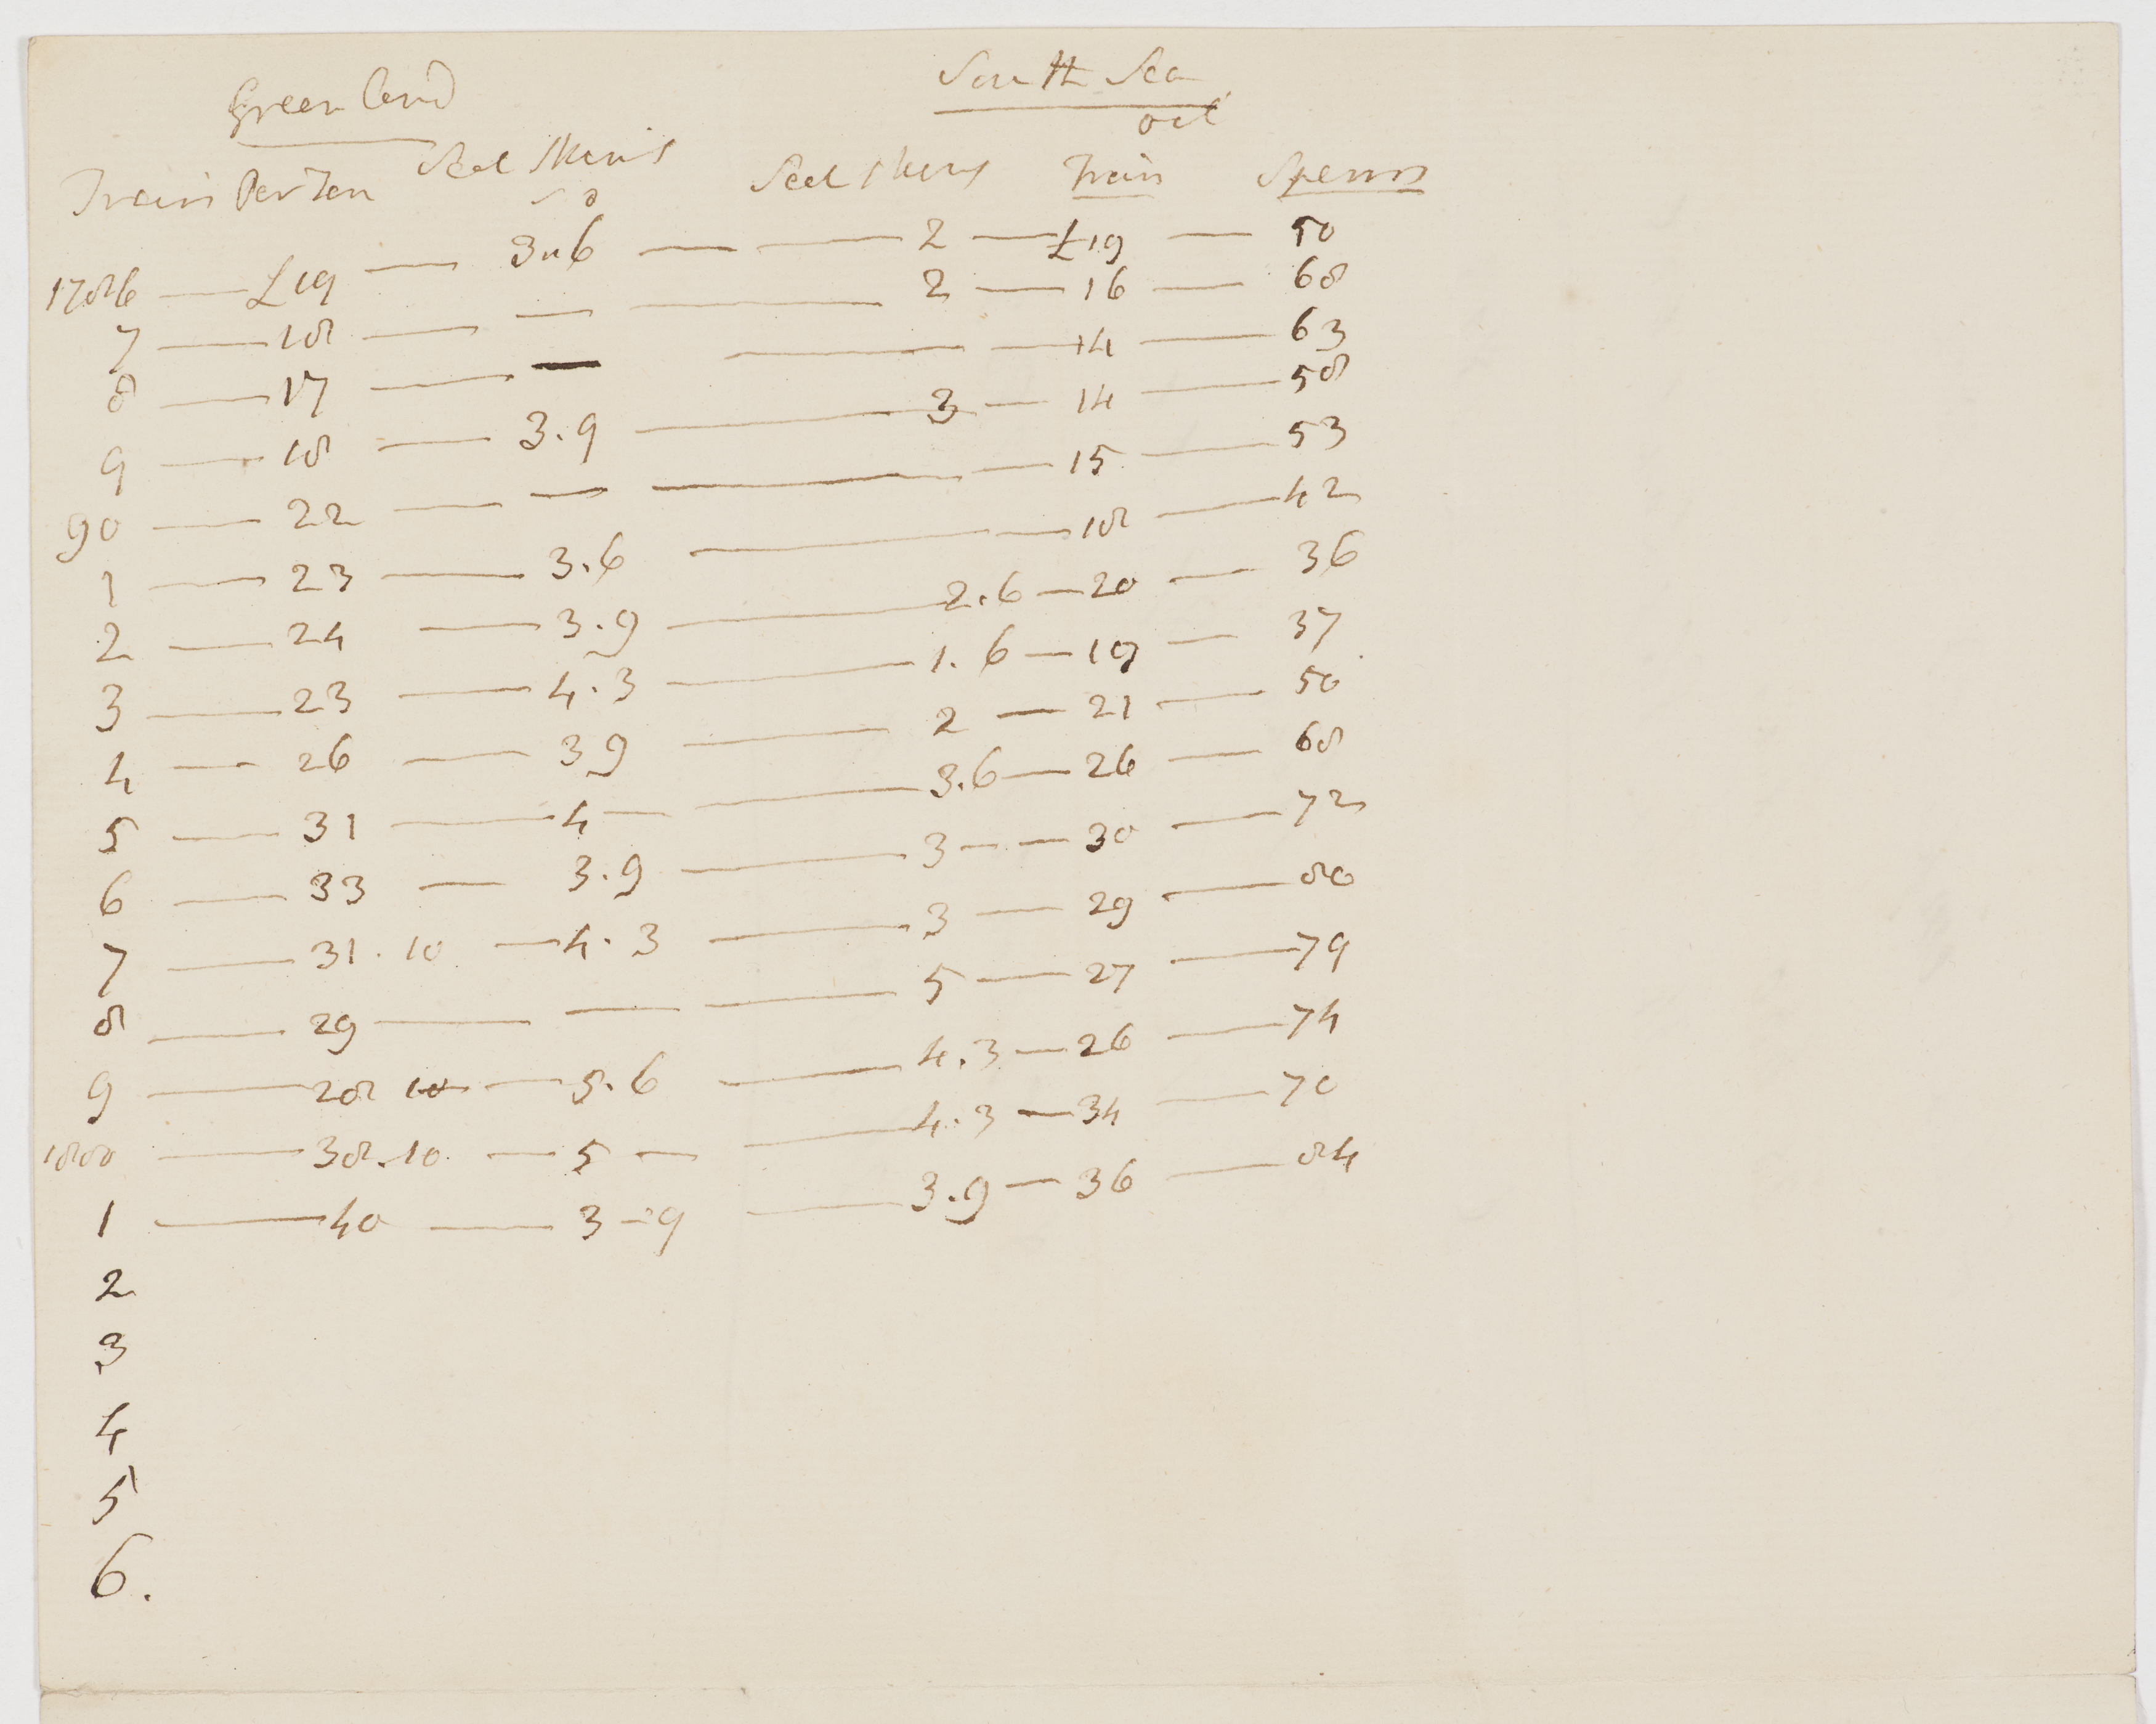 Greenland South Sea
oil
Train Per Ton Seal Skins Seal Skins Train Sperm
s d
1786 — £19 — 3"6 — — 2 — £19 — 50
7 — 18 — — — 2 — 16 — 68
8 — 17 — — — — 14 — 63
9 — 18 — 3.9 — 3 — 14 — 58
90 — 22 — — — — 15 — 53
1 — 23 — 3.6 — — 18 — 42
2 — 24 — 3.9 — 2.6 — 20 — 36
3 — 23 — 4.3 — 1.6 — 19 — 37
4 — 26 — 39 — 2 — 21 — 50
5 — 31 — 4 — — 3.6 — 26 — 68
6 — 33 — 3.9 — 3 — — 30 — 72
7 — 31.10 — 4.3 — 3 — 29 — 80
8 — 29 — — — 5 — 27 — 79
9 — 28 10 — 5.6 — 4.3 — 26 — 74
1800 — 38.10 — 5 — — 4.3 — 34 — 70
1 — 40 — 3-9 — 3.9 — 36 — 84
2
3
4
5
6.